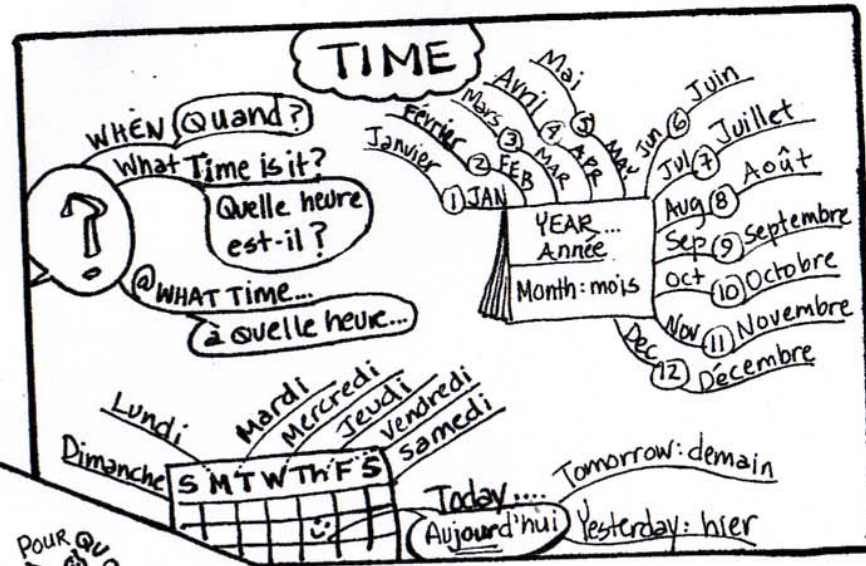 TIME
WHEN Quand?
What Time is it?
Quelle heure
est-il?
@ WHAT Time...
à quelle heure...
?
Janvier 1 JAN
Février 2 FEB
Mars 3 MAR
Avril 4 APR
Mai 5 MAY
Jun 6 Juin
Jul 7 Juillet
Aug 8 Août
Sep 9 Septembre
Oct 10 Octobre
Nov 11 Novembre
Dec 12 Décembre
YEAR...
Année
Month: mois
Dimanche
Lundi
Mardi
Mercredi
Jeudi
Vendredi
Samedi
S M T W Th F S
Today....
Aujourd'hui
Tomorrow: demain
Yesterday: hier
POUR QUO